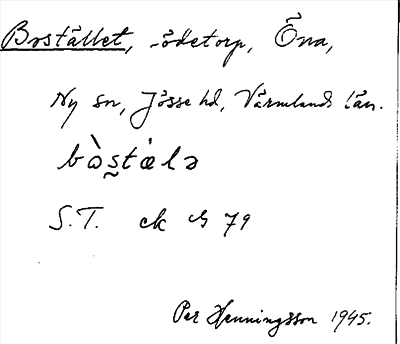 Boställlet, -ödetorp, Öna,
Ny sn, Jösse hd, Värmlands län.
bòs̰tälə
S.T. ek 79
Per Henningsson 1945.